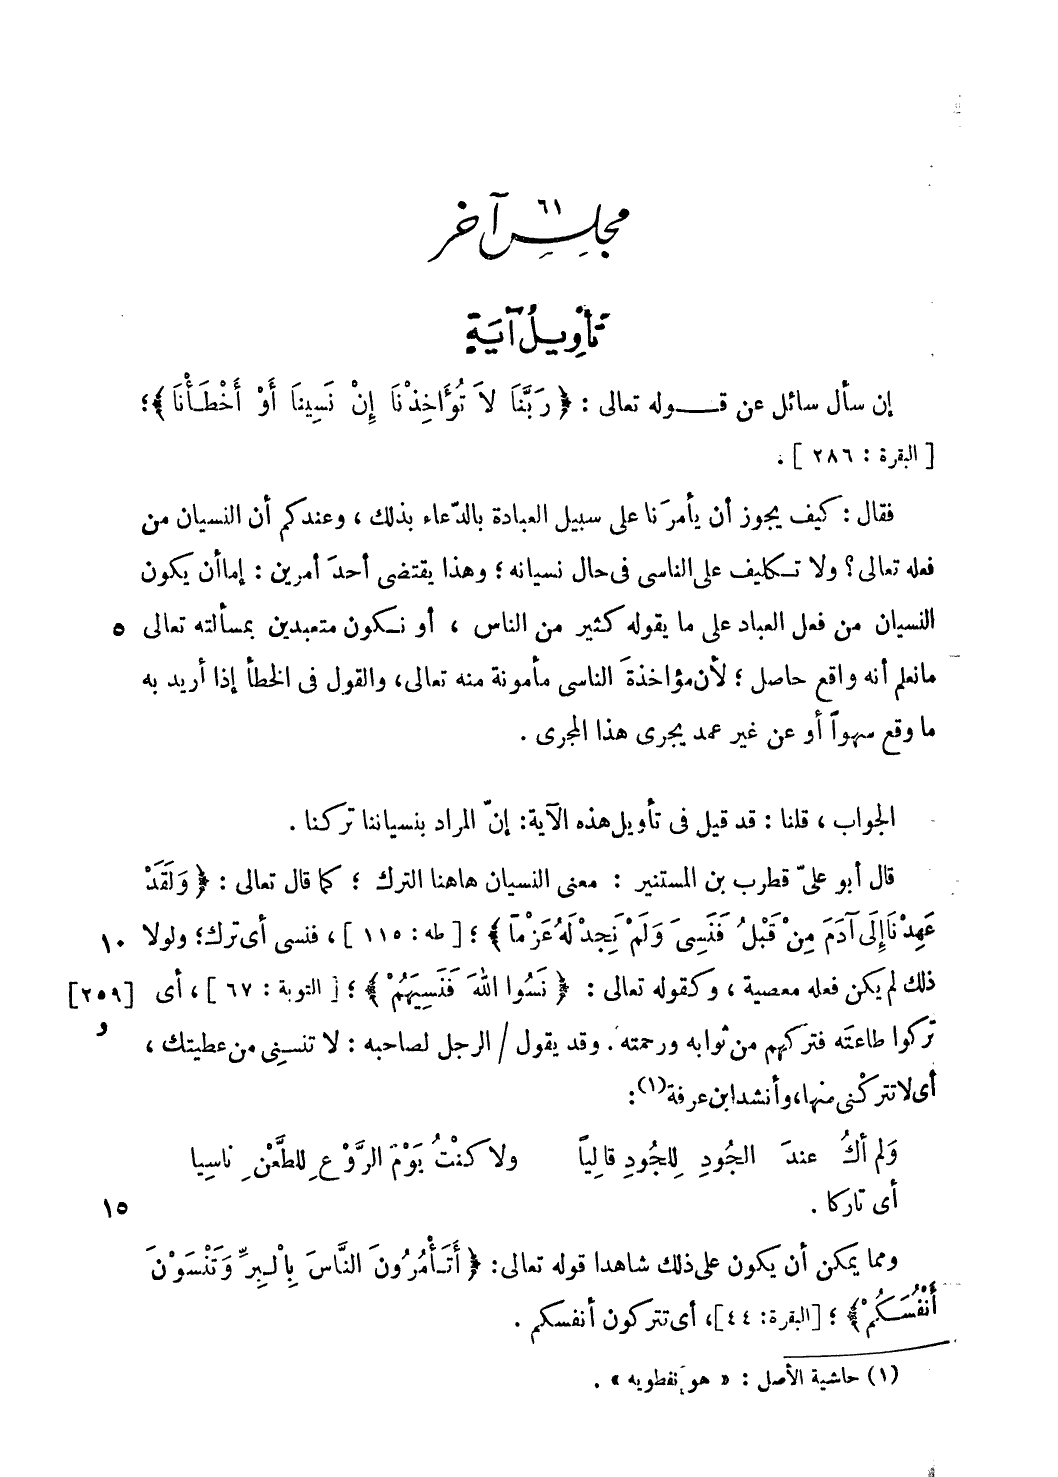 مجلس آخر ٦١
تأويل آية
إن سأل سائل عن قوله تعالى : ﴿ رَبَّنَا لاَ تُؤَاخِذْنَا إِنْ نَسِينَا أَوْ أَخْطَأْنَا ﴾؛
[ البقرة : ٢٨٦ ] .
فقال : كيف يجوز أن يأمرَنا على سبيل العبادة بالدّعاء بذلك ، وعندكم أن النسيان من
فعله تعالى ؟ ولا تكليف على الناسى فى حال نسيانه ؛ وهذا يقتضى أحدَ أمرين : إما أن يكون
النسيان من فعل العباد على ما يقوله كثير من الناس ، أو نكون متعبدين بمسألته تعالى ٥
مانعلم أنه واقع حاصل ؛ لأن مؤاخذةَ الناسى مأمونة منه تعالى، والقول فى الخطأ إذا أريد به
ما وقع سهواً أو عن غير عمد يجرى هذا المجرى .
الجواب ، قلنا : قد قيل فى تأويل هذه الآية: إنّ المراد بنسياننا تركنا .
قال أبو علىّ قطرب بن المستنير : معنى النسيان هاهنا الترك ؛ كما قال تعالى : ﴿ وَلَقَدْ
عَهِدْنَا إِلَى آدَمَ مِنْ قَبْلُ فَنَسِىَ وَلَمْ نَجِدْ لَهُ عَزْمًا ﴾ ؛ [ طه : ١١٥ ] ، فنسى أى ترك؛ ولولا ١٠
ذلك لم يكن فعله معصية ، وكقوله تعالى : ﴿ نَسُوا اللهَ فَنَسِيَهُمْ ﴾ ؛ [ التوبة : ٦٧ ] ، أى [٢٥٩]
تركوا طاعته فتركهم من ثوابه ورحمته . وقد يقول / الرجل لصاحبه : لا تنسنِى من عطيتك ، و
أى لا تتركْنى منها، وأنشد ابن عرفة (١) :
وَلم أكُ عندَ الجُودِ لِلجُودِ قالِياً ولا كنْتُ يَوْمَ الرَّوْعِ لِلطَّعْنِ ناسِيا
أى تاركا . ١٥
ومما يمكن أن يكون على ذلك شاهدا قوله تعالى: ﴿ أَتَأْمُرُونَ النَّاسَ بِالْبِرِّ وَتَنْسَوْنَ
أَنْفُسَكُمْ﴾ ؛ [البقرة: ٤٤]، أى تتركون أنفسكم .
(١) حاشية الأصل : « هو نفطويه » .